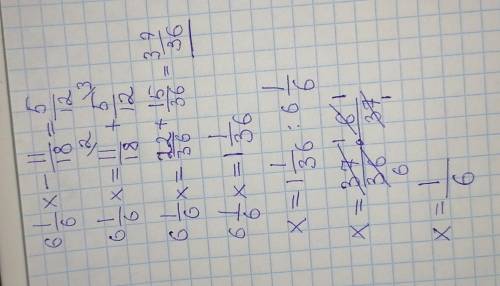 6 1/6 x - 11/18 = 5/12
6 1/6 x = 11/18 2/ + 5/12 3/
6 1/6 x = 22/36 + 15/36 = 37/36
6 1/6 x = 1 1/36
x = 1 1/36 : 6 1/6
x = 37/36 1 6 · 6/37 1 1
x = 1/6